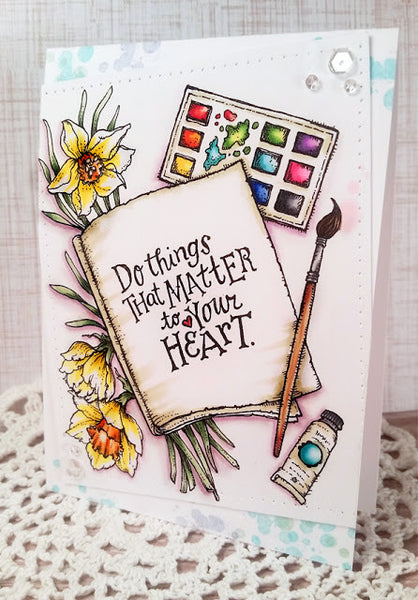 Do things
THAT MATTER
to Your
HEART.